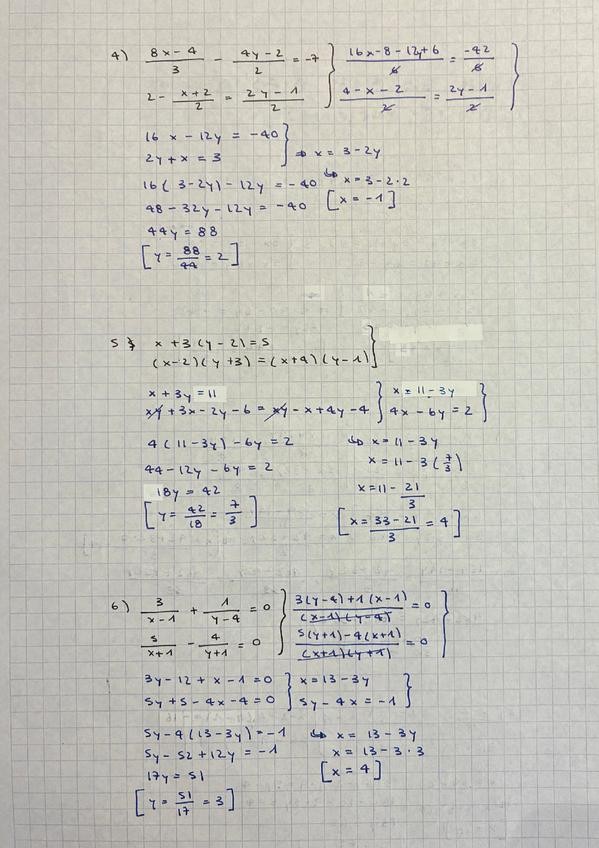 4) (8x-4)/3 - (4y-2)/2 = -7 } (16x-8-12y+6)/6 = -42/6 }
2 - (x+2)/2 = (2y-1)/2 } (4-x-2)/2 = (2y-1)/2 }
16x - 12y = -40 }
2y + x = 3 } ⇒ x = 3-2y
16(3-2y) - 12y = -40 ↳ x = 3-2·2
48 - 32y - 12y = -40 [x = -1]
44y = 88
[y = 88/44 = 2]
5) x + 3(y-2) = 5 }
(x-2)(y+3) = (x+4)(y-1) }
x + 3y = 11 } x = 11-3y }
xy + 3x - 2y - 6 = xy - x + 4y - 4 } 4x - 6y = 2 }
4(11-3y) - 6y = 2 ↳ x = 11-3y
44 - 12y - 6y = 2 x = 11-3(7/3)
18y = 42 x = 11 - 21/3
[y = 42/18 = 7/3] [x = (33-21)/3 = 4]
6) 3/(x-1) + 1/(y-4) = 0 } (3(y-4)+1(x-1))/((x-1)(y-4)) = 0 }
5/(x+1) - 4/(y+1) = 0 } (5(y+1)-4(x+1))/((x+1)(y+1)) = 0 }
3y - 12 + x - 1 = 0 } x = 13-3y }
5y + 5 - 4x - 4 = 0 } 5y - 4x = -1 }
5y - 4(13-3y) = -1 ↳ x = 13-3y
5y - 52 + 12y = -1 x = 13-3·3
17y = 51 [x = 4]
[y = 51/17 = 3]